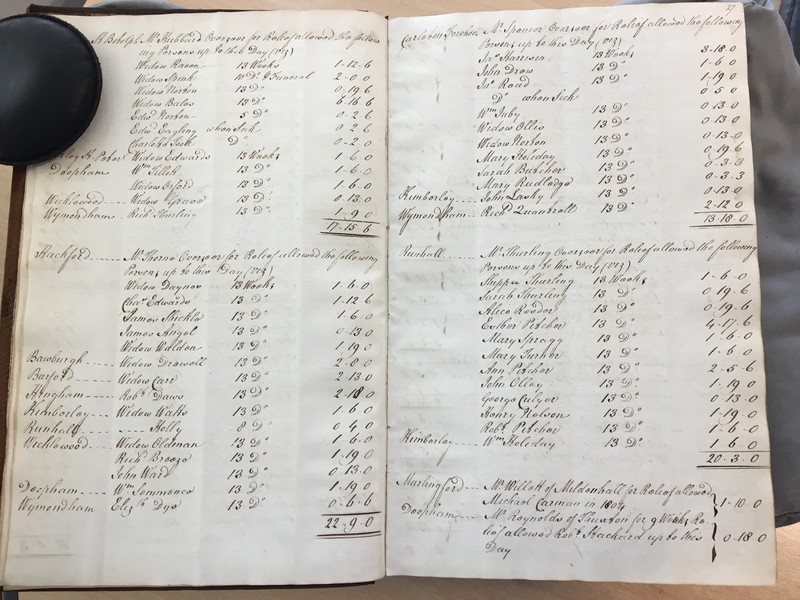 St. Botolph. Mr. Hubbard Overseer for Releof allowed the follow
ing Persons up to this Day (viz)
Widow Raven 13 Weeks 1-12-6
Widow Spink 10 Do. & Funeral 2-0-0
Widow Norton 13 Do. 0-19-6
Widow Bales 13 Do. 6-16-6
Edwd. Norton 5 Do. 0-2-6
Edwd. Eagling when Sick 0-2-6
Do. 0-2-0
St. Peters Widow Edwards 13 Weeks 1-6-0
Deopham Wm. 13 Do. 1-6-0
Widow Orford 13 Do. 1-6-0
Wicklewood Widow Graves 13 Do. 0-13-0
Wymondham Richd. Thurling 13 Do. 1-9-0
17-15-6
Hackford Mr. Thorns Overseer for Releof allowed the following
Persons up to this Day (viz)
Widow Daynes 13 Weeks 1-6-0
Chas. Edwards 13 Do. 1-12-6
James Stickle 13 Do. 1-6-0
James Angel 13 Do. 0-13-0
Widow Waldon 13 Do. 1-19-0
Bawburgh Widow Drewell 13 Do. 2-8-0
Barford Widow Carr 13 Do. 2-13-0
Hingham Robt. Daws 13 Do. 2-18-0
Kimberley Widow Watts 13 Do. 1-6-0
Runhall Holly 8 Do. 0-4-0
Wicklewood Widow Oldman 13 Do. 1-6-0
Richd. Breeze 13 Do. 1-19-0
John Ward 13 Do. 0-13-0
Deopham Wm. Semmence 13 Do. 1-19-0
Wymondham Elizth. Dye 13 Do. 0-6-6
22-9-0
27
Carleton Forehoe Mr. Spencer Overseer for Releof allowed the following
Persons up to this Day (viz)
Harrison 13 Weeks 3-18-0
John Drew 13 Do. 1-6-0
Jno. Read 13 Do. 1-19-0
Do. when Sick 0-5-0
Wm. Juby 13 Do. 0-13-0
Widow Ollis 13 Do. 0-13-0
Widow Norton 13 Do. 0-13-0
Mary Holiday 13 Do. 0-19-6
Sarah Butcher 13 Do. 0-3-3
Mary Rudledge 13 Do. 0-3-3
Kimberley John Lasky 13 Do. 0-13-0
Wymondham Richd. Quantrell 13 Do. 2-12-0
13-18-0
Runhall Mr. Thurling Overseer for Releof allowed the following
Persons up to this Day (viz)
Thurling 13 Weeks 1-6-0
Sarah Thurling 13 Do. 0-19-6
Alice Reeder 13 Do. 0-19-6
Esther Pitcher 13 Do. 4-17-6
Mary Spragg 13 Do. 1-6-0
Mary Turner 13 Do. 1-6-0
Ann Pitcher 13 Do. 2-5-6
John Olley 13 Do. 1-19-0
George Culyer 13 Do. 0-13-0
Henry Nelson 13 Do. 1-19-0
Robt. Pitcher 13 Do. 1-6-0
Kimberley Wm. Holeday 13 Do. 1-6-0
20-3-0
Marlingford Mr. Willett of Mildenhall for Releof allowed
Michael Carman in 1804 1-10-0
Deopham Mr. Reynolds of Thuxton for 9 Weeks Re
leof allowed Robt. Hackard up to this 0-18-0
Day